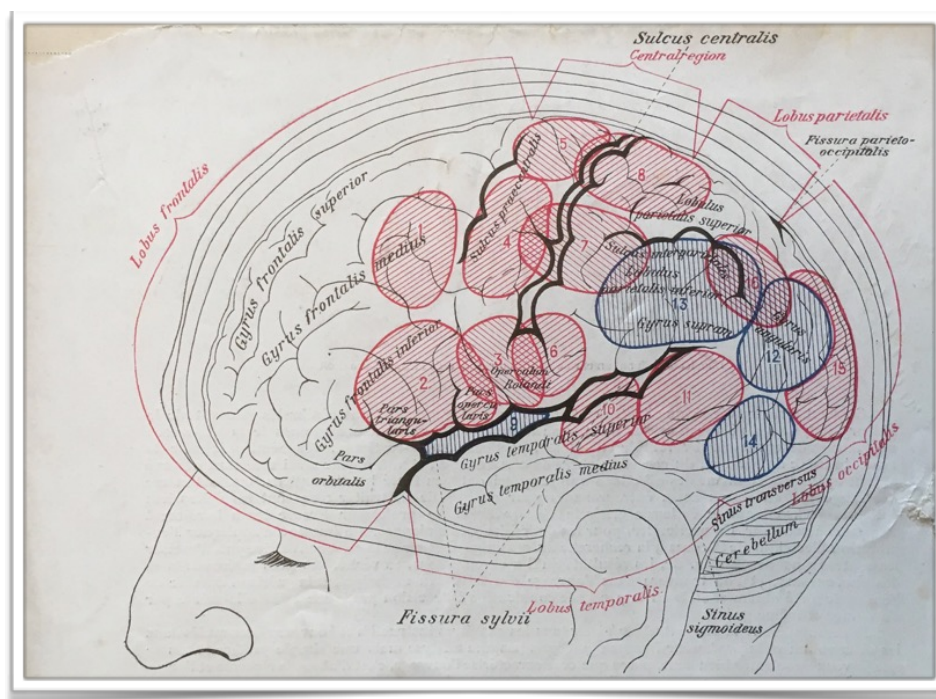 Sulcus centralis
Centralregion
Lobus parietalis
Fissura parieto-
occipitalis
Lobus frontalis
Gyrus frontalis superior
Gyrus frontalis medius
Gyrus frontalis inferior
Sulcus praecentralis
5
8
1
4
7
Lobulus
parietalis superior
Sulcus interparietalis
Lobulus
parietalis inferior
13
Gyrus supram
16
Gyrus
angularis
12
15
2
3
6
Operculum
Rolandi
Pars
triangu-
laris
Pars
opercu-
laris
Pars
orbitalis
9
10
11
14
Gyrus temporalis superior
Gyrus temporalis medius
Sinus transversus
Lobus occipitalis
Cerebellum
Fissura sylvii
Lobus temporalis
Sinus
sigmoideus